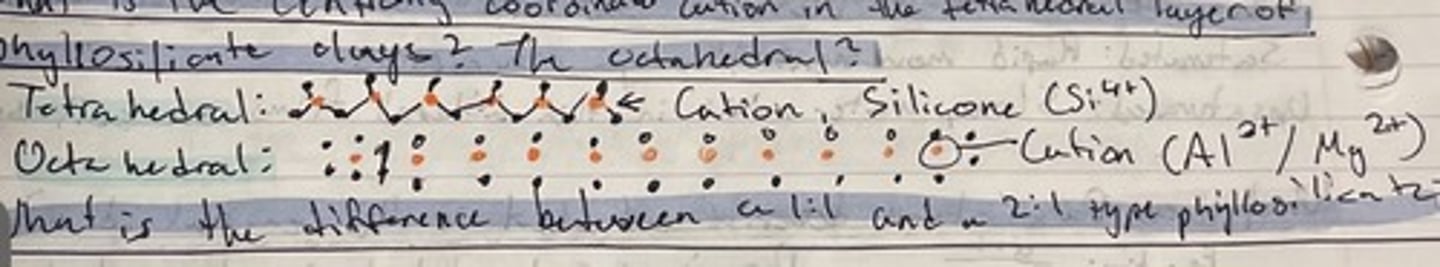 is the centrally coordinate cation in the tetrahedral layer of
phyllosilicate clays? The octahedral?
Tetrahedral: ← Cation, Silicone (Si⁴⁺)
Octahedral: Cation (Al³⁺/Mg²⁺)
What is the difference between a 1:1 and a 2:1 type phyllosilicate